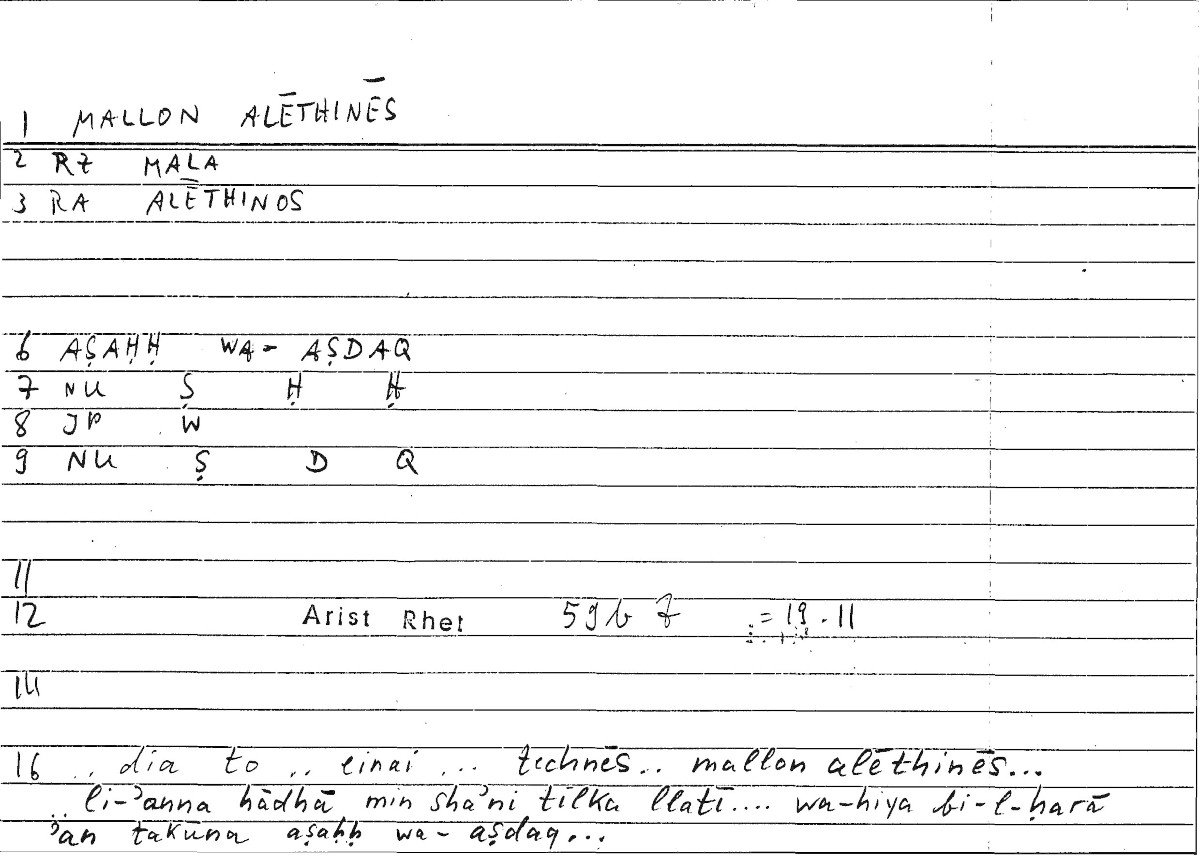 1 MALLON ALĒTHINĒS
2 RZ MALA
3 RA ALĒTHINOS
6 AṢAḤḤ WA- AṢDAQ
7 NU Ṣ Ḥ Ḥ
8 JP W
9 NU Ṣ D Q
11
12 Arist Rhet 59b7 = 19.11
14
16 .. dia to .. einai ... technēs.. mallon alēthinēs...
.. li-ʾanna hādhā min shaʾni tilka llatī.... wa-hiya bi-l-ḥarā
ʾan takūna aṣaḥḥ wa- aṣdaq...